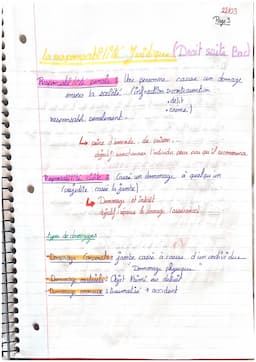 22/03
Page 3
La responsabilité Juridique (Droit suite Bac)
Responsabilité pénale : Une personne cause un dommage
envers la société. (Infraction = contravention
• délit
• crime)
responsable pénalement.
↳ peine d'amende, de prison...
objectif : sanctionner l'individu pour pas qu'il recommence.
Responsabilité civile : Causé un dommage à quelqu'un
(cassé la jambe)
↳ Dommage et intérêt
objectif : réparer le dommage (assurance)
types de dommages
- Dommage corporelle : jambe cassé à cause d'un individu
Dommage physique
- Dommage matérielle : Objet abîmé ou détruit
- Dommage morale : traumatisé + accident